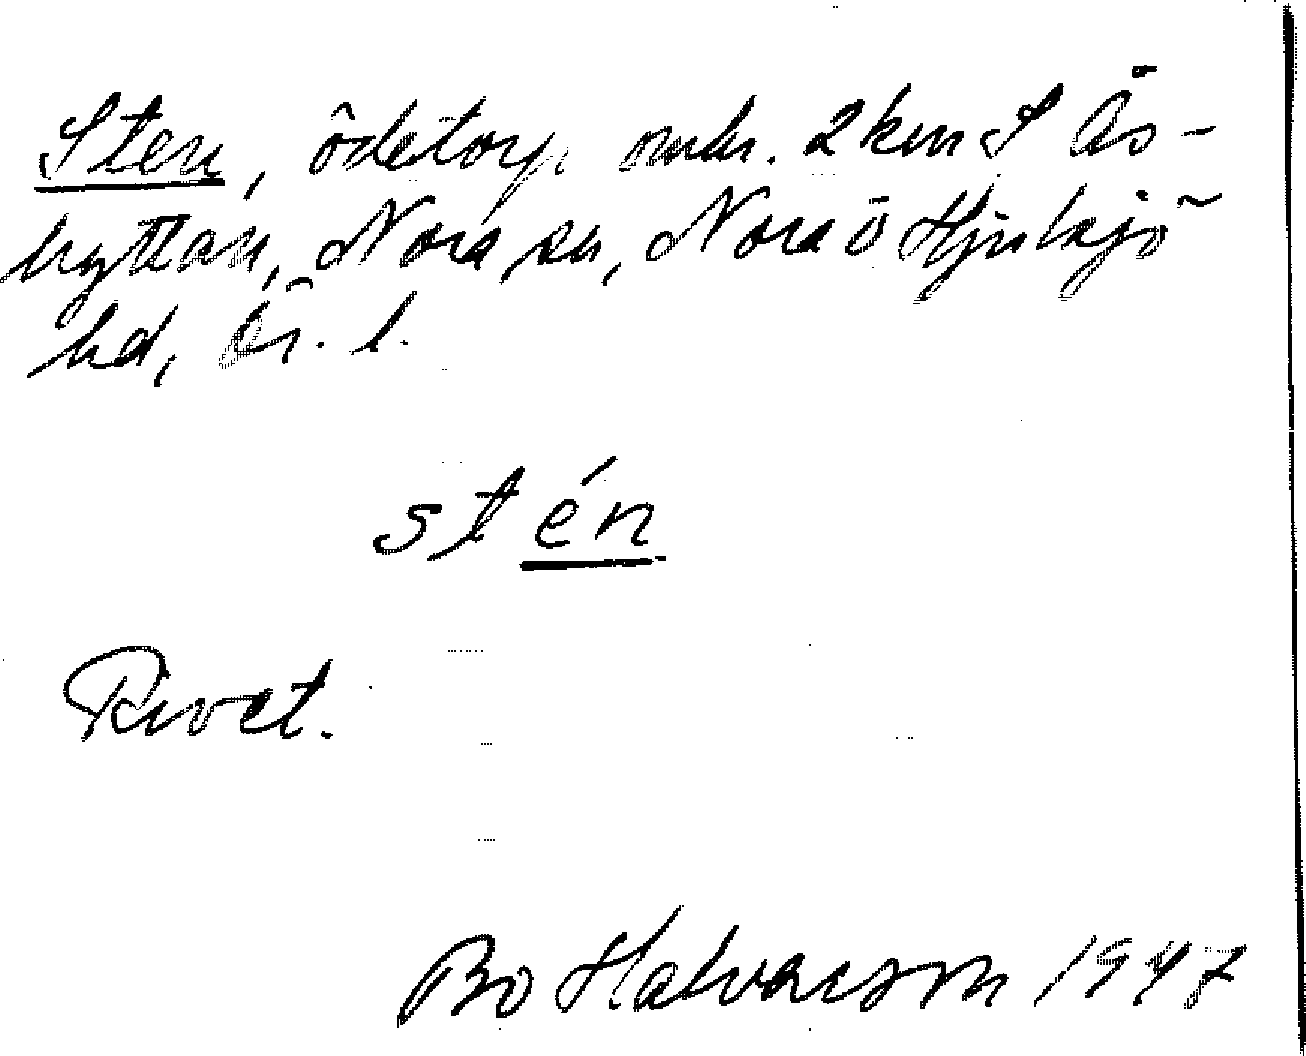 Sten, ödetorp, omkr. 2 km S Ås-
hyttan, Nora sn, Nora o Hjulsjö
hd, Ör. l.
stén
Rivet.
Bo Halvarson 1947